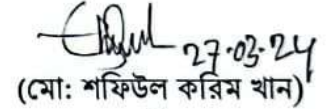 27-03-24
(মো: শফিউল করিম খান)